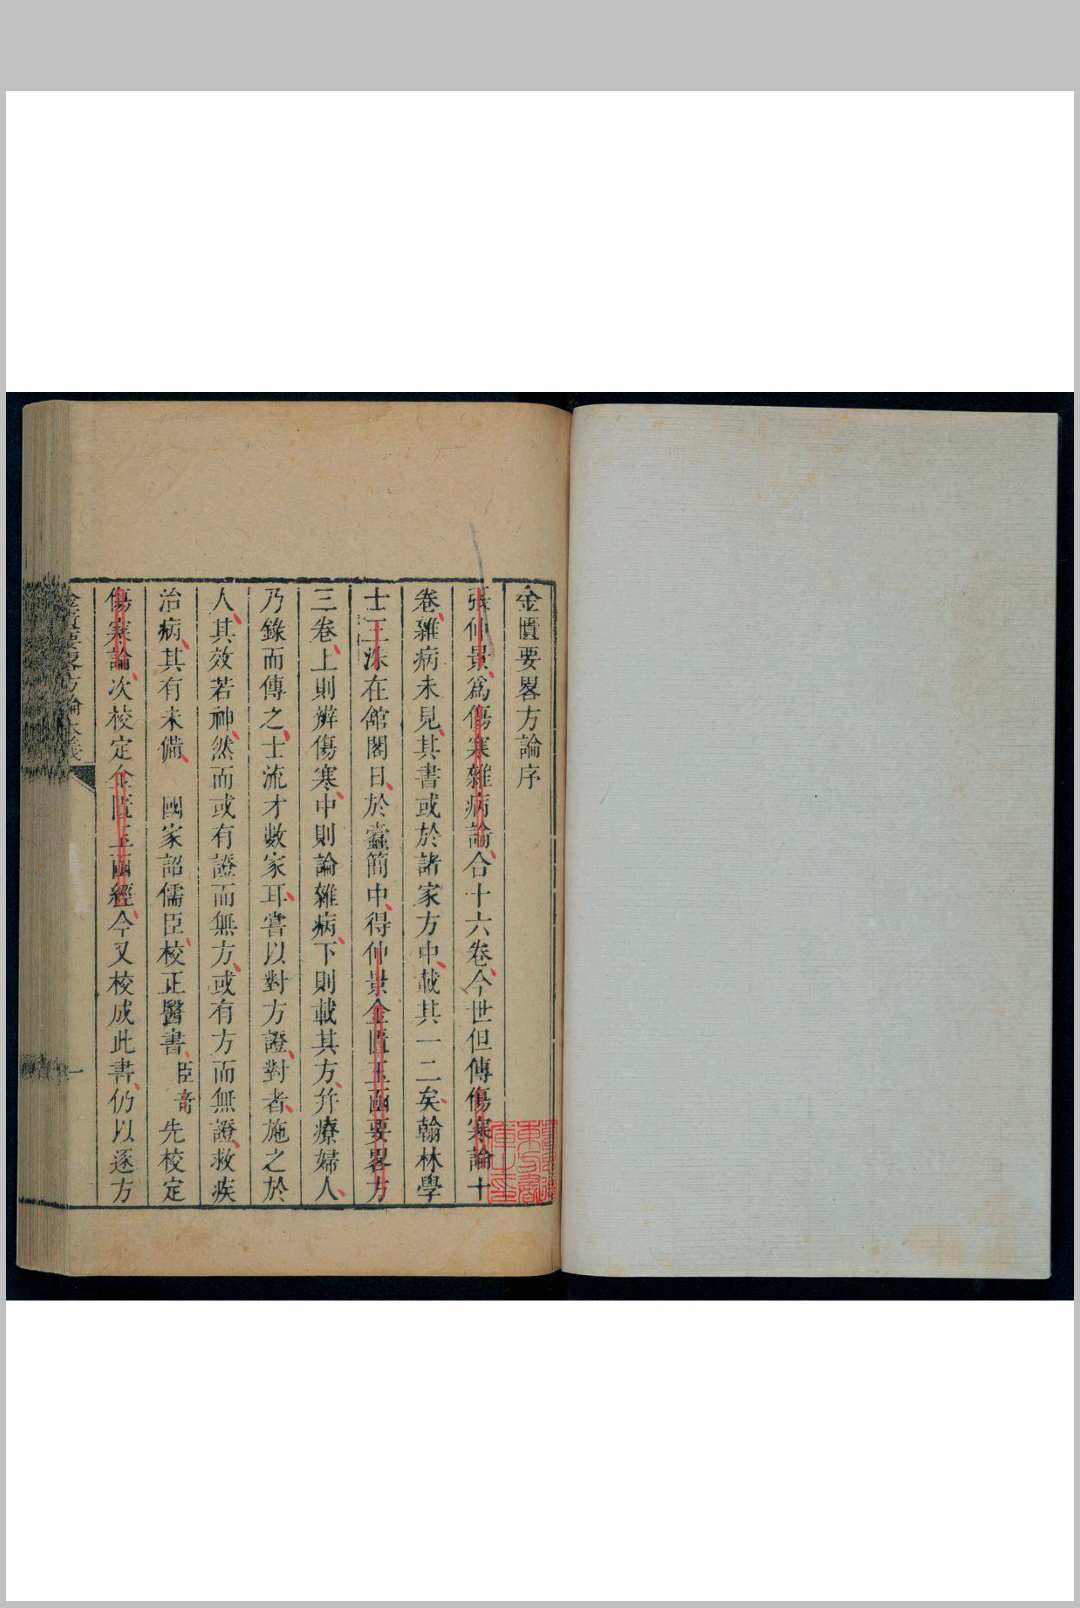 金匱要畧方論序
張仲景爲傷寒雜病論合十六卷今世但傳傷寒論十
卷雜病未見其書或於諸家方中載其一二矣翰林學
士王洙在館閣日於蠹簡中得仲景金匱玉函要畧方
三卷上則辨傷寒中則論雜病下則載其方并療婦人
乃錄而傳之士流才數家耳嘗以對方證對者施之於
人其效若神然而或有證而無方或有方而無證救疾
治病其有未備　國家詔儒臣校正醫書臣竒先校定
傷寒論次校定金匱玉函經今又校成此書仍以逐方
金匱要畧方論本義
一